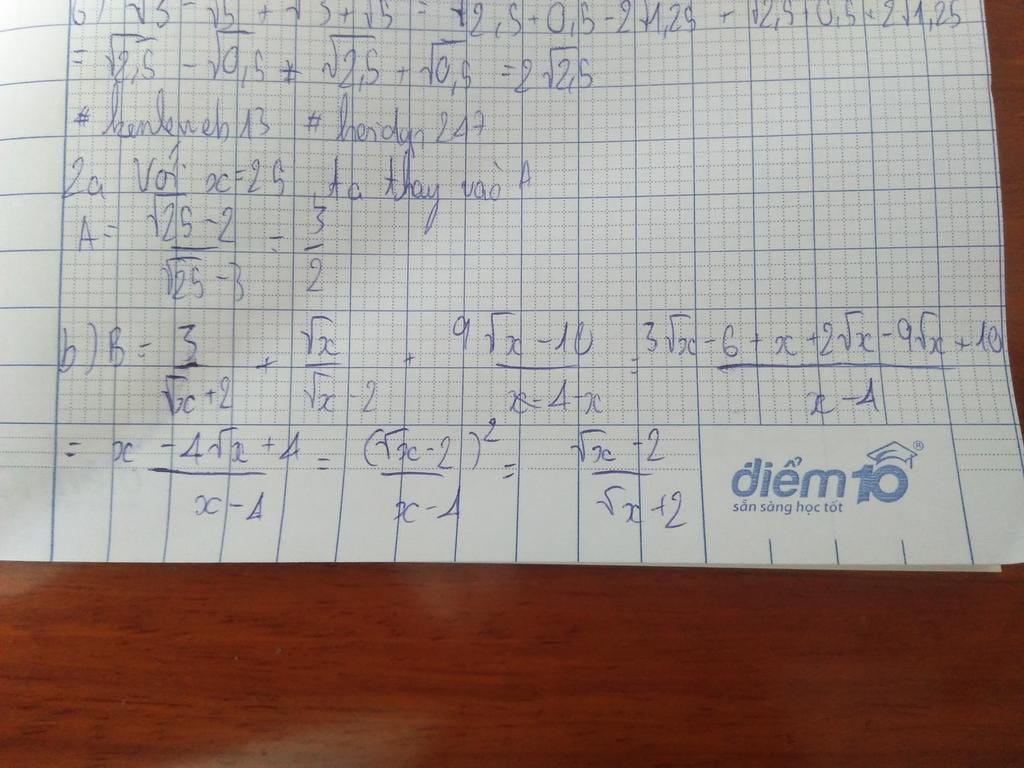 b) √3 - √5 + √3 + √5 = √2,5 + 0,5 - 2√1,25 + √2,5 + 0,5 + 2√1,25
= √2,5 - √0,5 + √2,5 + √0,5 = 2√2,5
2a Với x=25 ta thay vào A
A = (√25 - 2)/(√25 - 3) = 3/2
b) B = 3/(√x+2) + √x/(√x-2) + (9√x - 10)/(4-x) = (3√x - 6 + x + 2√x - 9√x + 10)/(x-4)
= (x - 4√x + 4)/(x-4) = (√x-2)²/(x-4) = (√x-2)/(√x+2)
điểm 10 ®
sẵn sàng học tốt